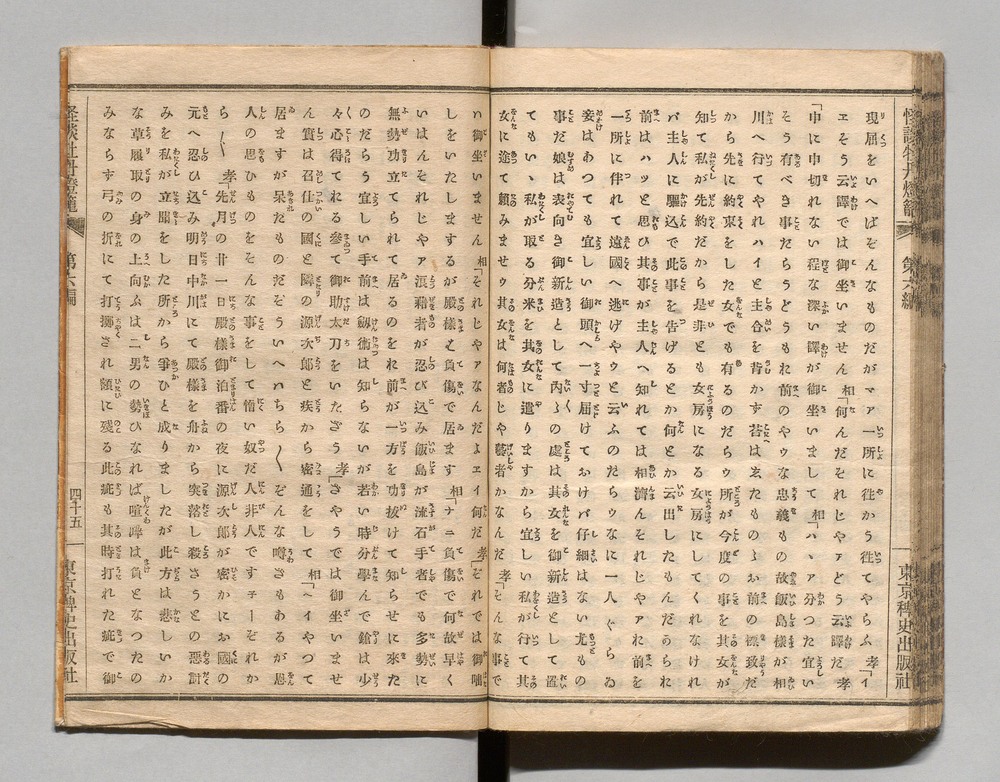 怪談牡丹燈籠 第六編 東京稗史出版社
現屈をいへばそんなものだがマア一所に往かう往てやらふ 孝「イ
エそう云譯では御坐いません 相「何んだそれじやアどう云譯だ 孝
「中に申切れない程な深い譯が御坐いまして 相「ハア分つた宜い
そう有べき事だらうどうもお前のやうな忠義もの故飯島樣が相
川へ行てやれハイと主命を背かず答は玄たものゝお前の標致だ
から先に約束をした女でも有るのだらウ所が今度の事を其女が
知て私が先約だから是非とも女房になる女房にしてくれなけれ
バ主人に駆込で此事を告げるとか何とか云出したもんだのられ
前はハツと思ひ其事が主人へ知れては相濟んそれじやアお前を
一所に伴れて遠國へ逃げやウと云ふのだらウなに一人ぐらゐ
妾はあつても宜しい御頭へ一寸届けておけバ仔細はない尤もの
事だ娘は表向き御新造として内ゝの處は其女を御新造として置
てもいゝ私が取る分米を其女に遣りますから宜しい私が行て其
女に逢て頼みませウ其女は何者じや藝者かなんだ 孝「そんな事で
ハ御坐いません 相「それじやアなんだよエイ何だ 孝「それでは御咄
しをいたしまするが殿樣は負傷で居ます 相「ナニ負傷で何故早く
いはんそれじやア浪藉者が忍び込み飯島が流石手者でも多勢に
無勢切立てられて居るのをれ前が一方を切拔けて知らせに來た
のだらう宜しい手前は劔術は知らないが若い時分學んで餘は少
々心得てれる參て御助太刀をいたさう 孝「さやうでは御坐いませ
ん實は召仕の國と隣の源次郎と疾から密通をして 相「ヘイやつて
居ますか呆だものだそういへハちら〳〵そんな噂さもあるが恩
人の思ひものをそんな事をして惰い奴だ人非人ですチーそれか
ら〳〵 孝「先月の廿一日殿樣御泊番の夜に源次郎が密かにお國の
元へ忍ひ込み明日中川にて殿樣を舟から突落し殺さうとの惡計
みを私が立聞をした所から爭ひと成りましたが此方は悲しいか
な草履取の身の上向ふは二男の勢ひなれば喧嘩は負となつたの
みならす弓の折にて打擲され額に殘る此疵も其時打れた疵で御
怪談牡丹燈籠 第六編 四十五 東京稗史出版社